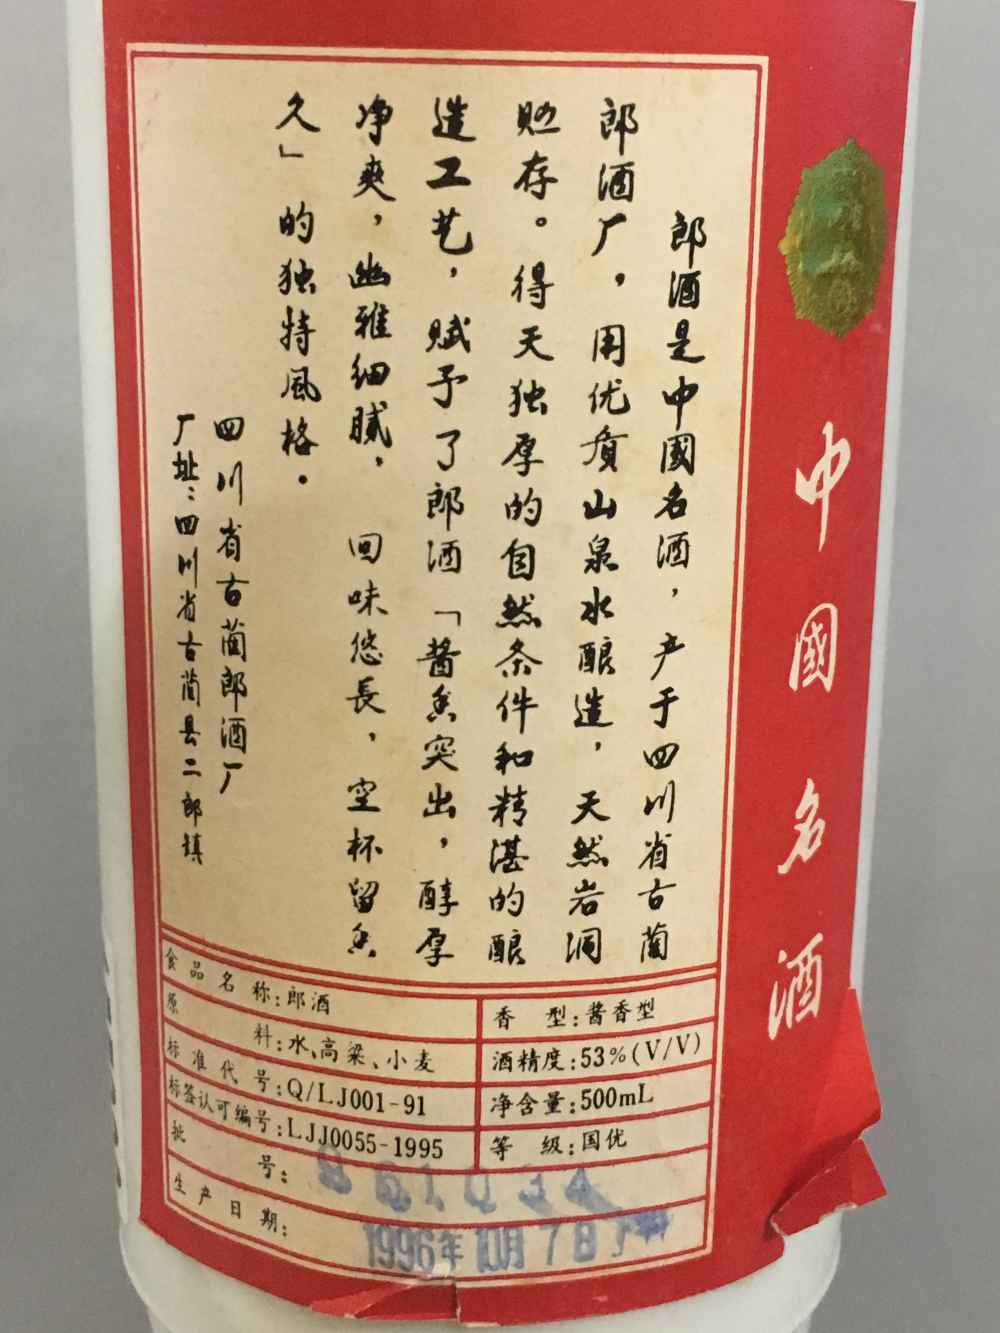 中國名酒
郎酒是中國名酒，产于四川省古蔺
郎酒厂，用优质山泉水酿造，天然岩洞
贮存。得天独厚的自然条件和精湛的酿
造工艺，赋予了郎酒「酱香突出，醇厚
净爽，幽雅细腻，回味悠長，空杯留香
久」的独特風格．
四川省古蔺郎酒厂
厂址：四川省古蔺县二郎镇
食品名称：郎酒
香 型：酱香型
原 料：水、高粱、小麦
酒精度：53%(V/V)
标准代号：Q/LJ001-91
净含量：500mL
标签认可编号：LJJ0055-1995
等 级：国优
批 号：
生产日期：1996年10月7日